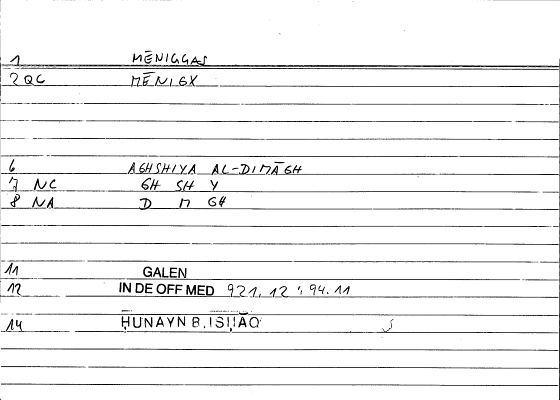 1 MĒNIGGAS
2 QC MĒNIGX
6 AGHSHIYA AL-DIMĀGH
7 NC GH SH Y
8 NA D M GH
11 GALEN
12 IN DE OFF MED 921.12 ; 94.11
14 ḤUNAYN B. ISḤĀQ